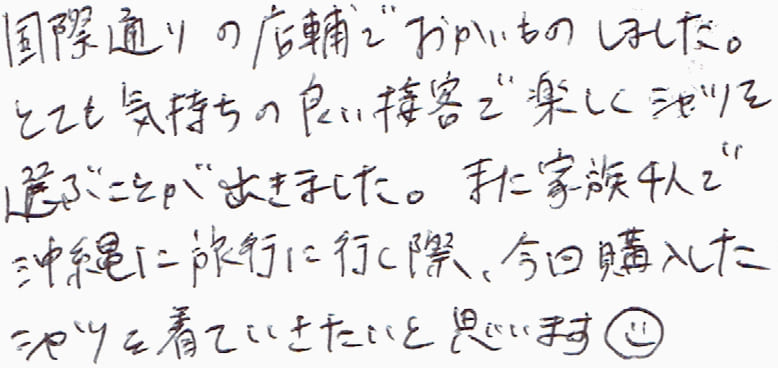 国際通りの店舗でおかいものしました。
とても気持ちの良い接客で楽しくシャツを
選ぶことが出きました。また家族4人で
沖縄に旅行に行く際、今回購入した
シャツを着ていきたいと思います☺